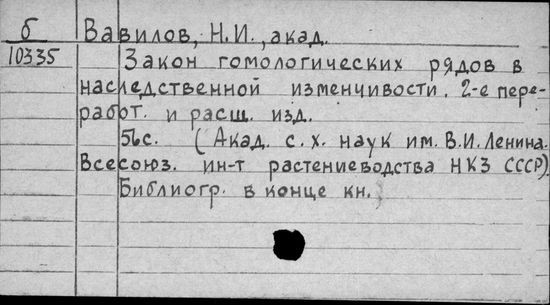 б Вавилов, Н.И., акад.
10335 Закон гомологических рядов в
наследственной изменчивости. 2-е пере-
работ. и расш. изд.
56с. (Акад. с.х. наук им. В.И. Ленина.
Всесоюз. ин-т растениеводства НКЗ СССР).
Библиогр. в конце кн.